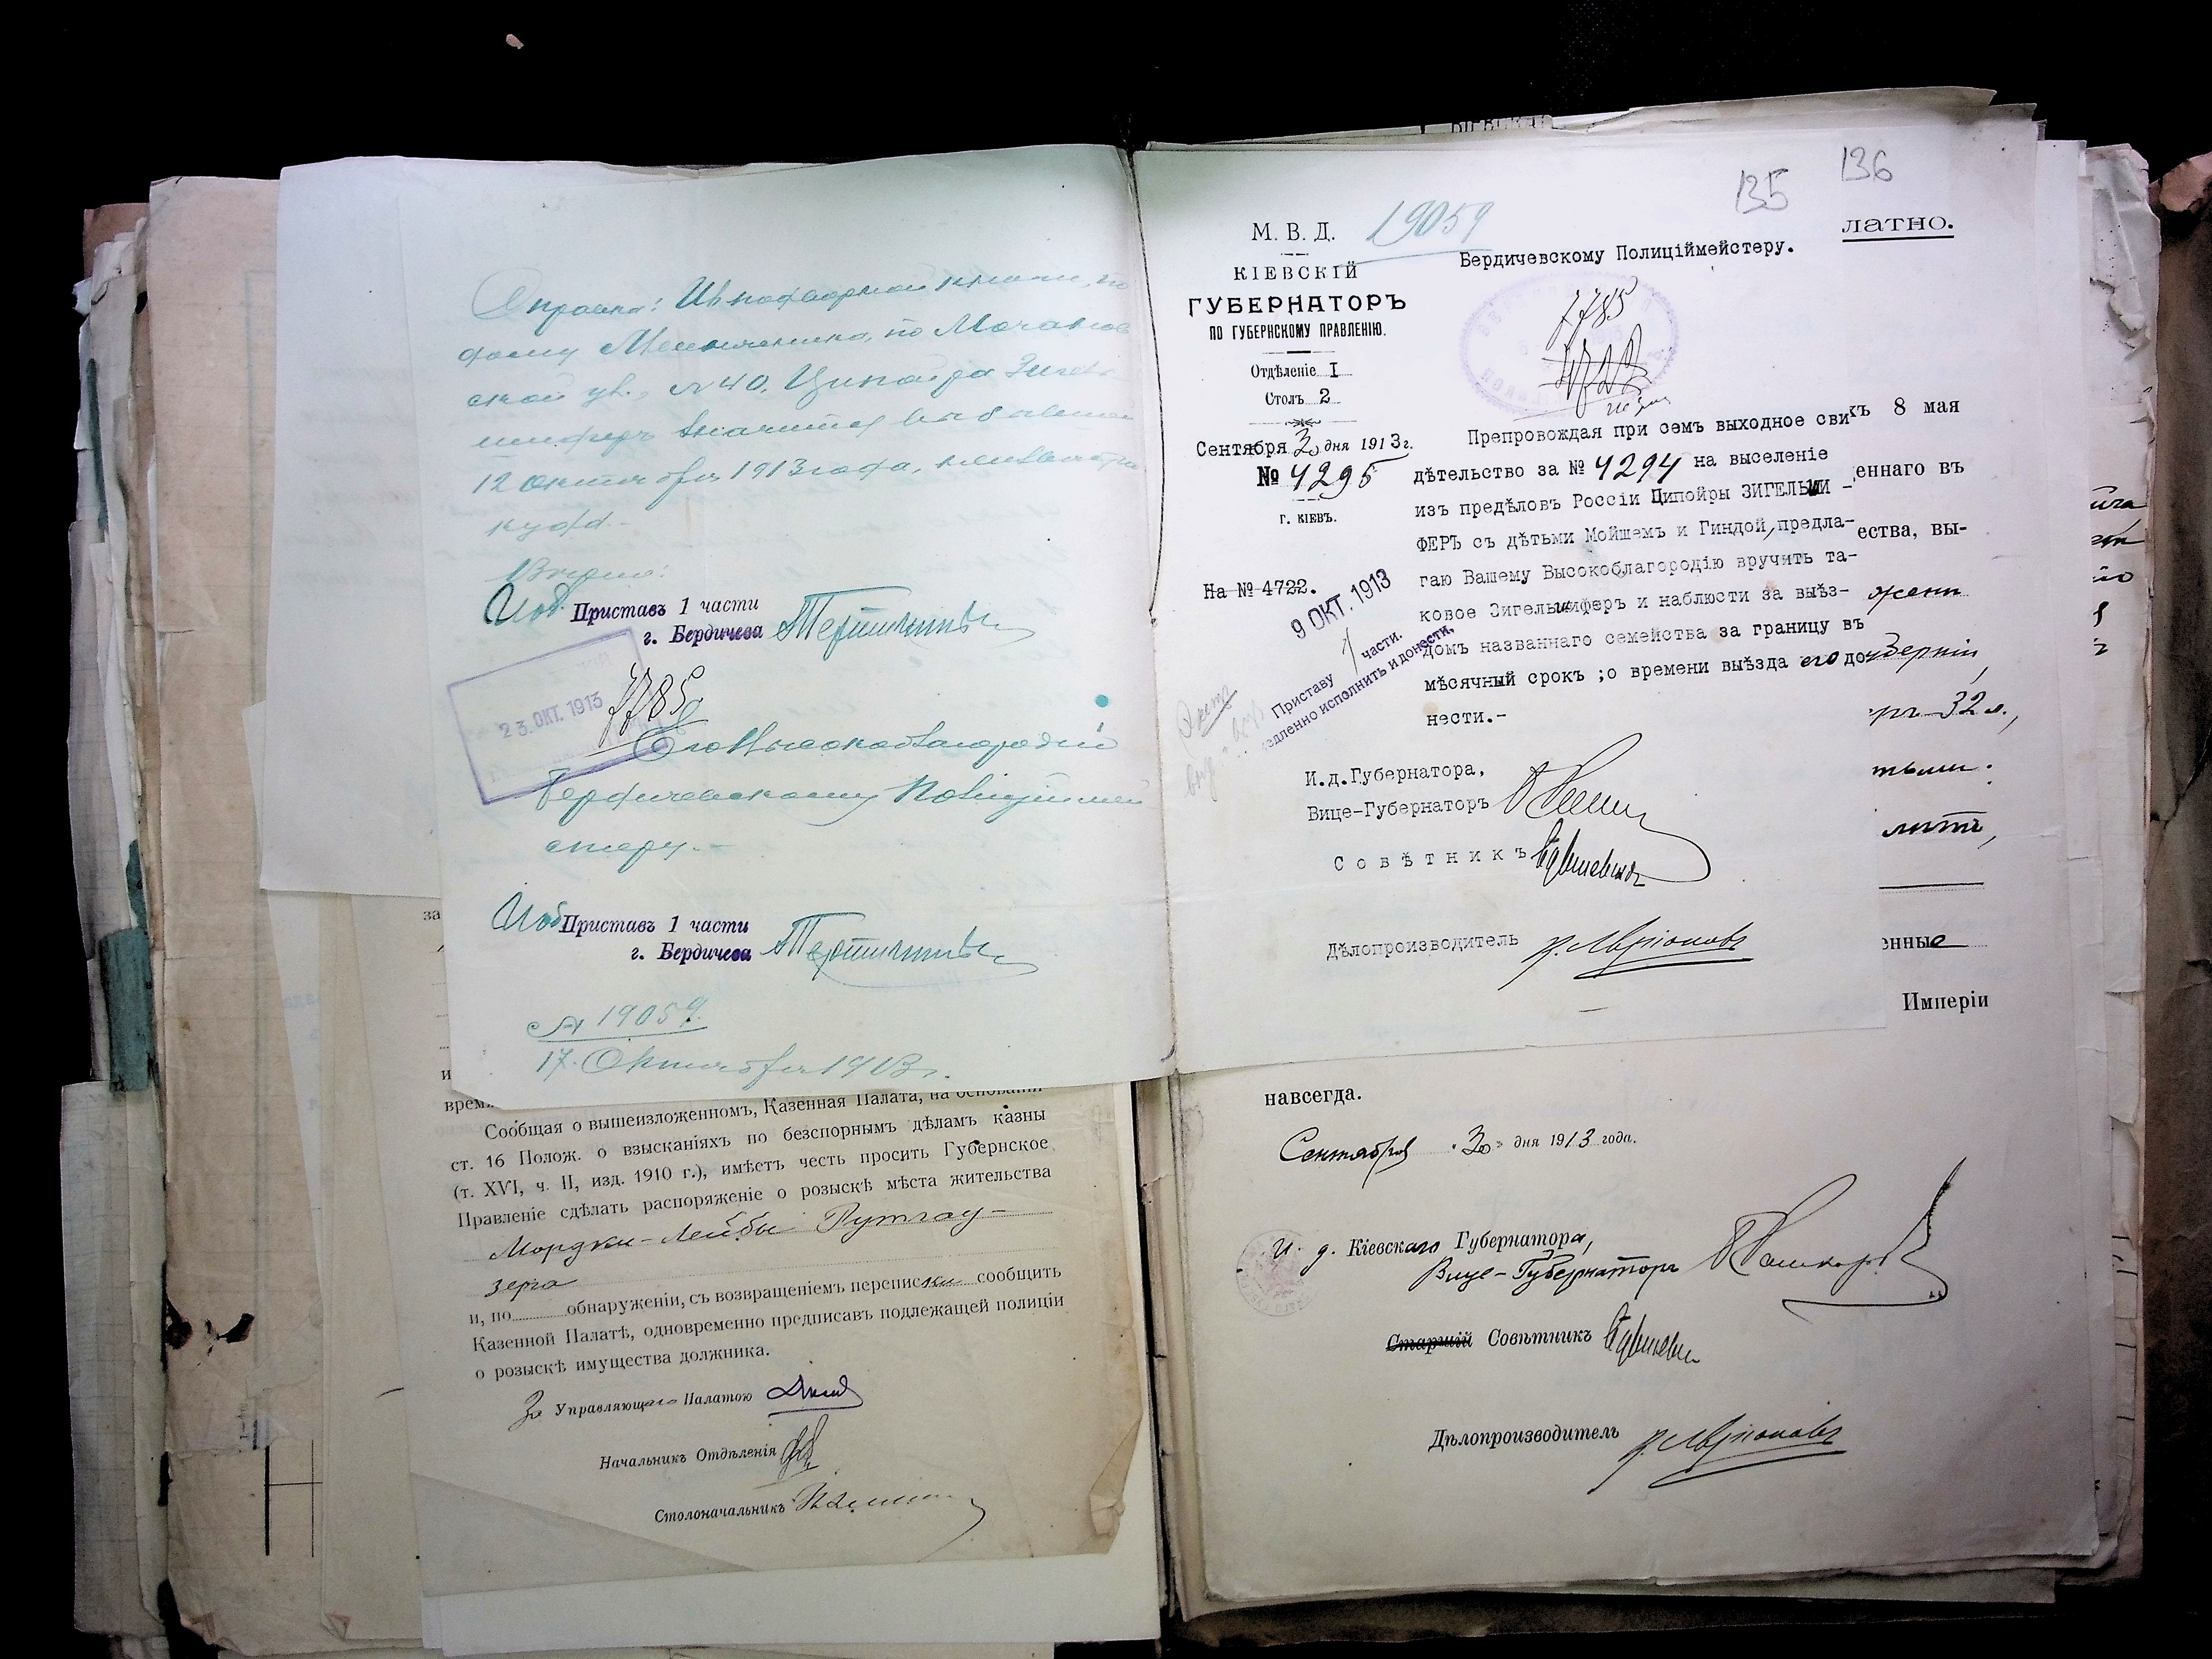 Справка: Из подворной книги, по
дому Мельниченко, по Махнов
ской ул., № 40, Ципойра Зигель
шиферъ значится выбывшей
12 октября 1913 года, неизвестно
куда.-
Вѣрно:
Иоб. Приставъ 1 части
г. Бердичева
23 ОКТ. 1913
7785
Его Высокоблагородію
Бердичевскому Полиціймей
стеру.-
Иоб Приставъ 1 части
г. Бердичева
№ 19059.
17 Октября 1913 г.
за
и
врем
Сообщая о вышеизложенномъ, Казенная Палата, на основаніи
ст. 16 Полож. о взысканіяхъ по безспорнымъ дѣламъ казны
(т. XVI, ч. II, изд. 1910 г.), имѣетъ честь просить Губернское
Правленіе сдѣлать распоряженіе о розыскѣ мѣста жительства
Мордки-Лейбы Рутгау-
зера
и, по обнаруженіи, съ возвращеніемъ переписки сообщить
Казенной Палатѣ, одновременно предписавъ подлежащей полиціи
о розыскѣ имущества должника.
За Управляющаго Палатою
Начальникъ Отдѣленія
Столоначальникъ
135
136
М. В. Д. 19059
КІЕВСКІЙ
ГУБЕРНАТОРЪ
ПО ГУБЕРНСКОМУ ПРАВЛЕНІЮ.
Отдѣленіе I
Столъ 2
Сентября 30 дня 1913 г.
№ 4295
г. КІЕВЪ.
На № 4722.
9 ОКТ. 1913
Приставу 1 части.
едленно исполнить и донести,
Бердичевскому Полиціймейстеру.
7785
Препровождая при семъ выходное сви
дѣтельство за № 4294 на выселеніе
изъ предѣловъ Россіи Ципойры ЗИГЕЛЬШИ -
ФЕРЪ съ дѣтьми Мойшемъ и Гиндой, предла-
гаю Вашему Высокоблагородію вручить та-
ковое Зигельшиферъ и наблюсти за выѣз-
домъ названнаго семейства за границу въ
мѣсячный срокъ ;о времени выѣзда его до
нести.-
И.д.Губернатора,
Вице-Губернаторъ
Совѣтникъ
Дѣлопроизводитель
латно.
къ 8 мая
еннаго въ
ества, вы-
жени
губерніи,
ръ 32 л.,
тьми:
лить,
енные
Имперіи
навсегда.
Сентября "30" дня 1913 года.
И. д. Кіевскаго Губернатора,
Вице-Губернаторъ
Старшій Совѣтникъ
Дѣлопроизводитель